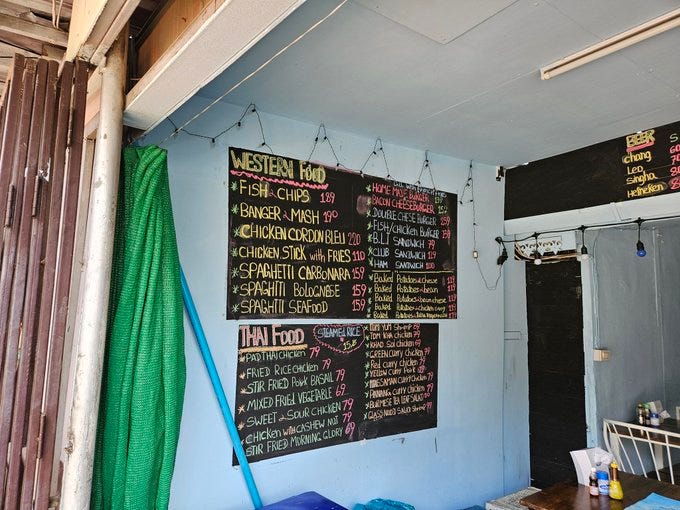 WESTERN Food
FISH & CHIPS 189
BANGER & MASH 190
CHICKEN CORDON BLEU 220
CHICKEN STICK with FRIES 110
SPAGHETTI CARBONARA 159
SPAGHITI BOLOGNESE 159
SPAGHITI SEAFOOD 159
HOME MADE BURGER
BACON CHEESEBURGER
DOUBLE CHESE BURGER
FISH/CHICKEN BURGER
B.L.T SANDWICH 79
CLUB SANDWICH 119
HAM SANDWICH 100
Baked Potatoes & cheese
Baked Potatoes & bean
Baked Potatoes & bean cheese
Baked Potatoes
Baked Potatoes
THAI FOOD
STEAMED RICE
PADTHAI CHICKEN 79
FRIED RICE CHICKEN 79
STIR FRIED PORK BASAIL 79
MIXED FRIED VEGETABLE 69
SWEET & SOUR CHICKEN 79
CHICKEN with CASHEW NUT 79
STIR FRIED MORNING GLORY 69
TOM YUM Shrimp
TOM KHA chicken
KHAO SOI chicken
GREEN curry chicken
Red curry chicken
YELLOW curry Pork
MASSAMAN curry Chicken
PANANG curry chicken
BURMESE TEA LEAF SALAD
GLASS NOODLE SALAD Shrimp
BEER
Chang
Leo
Singha
Heineken